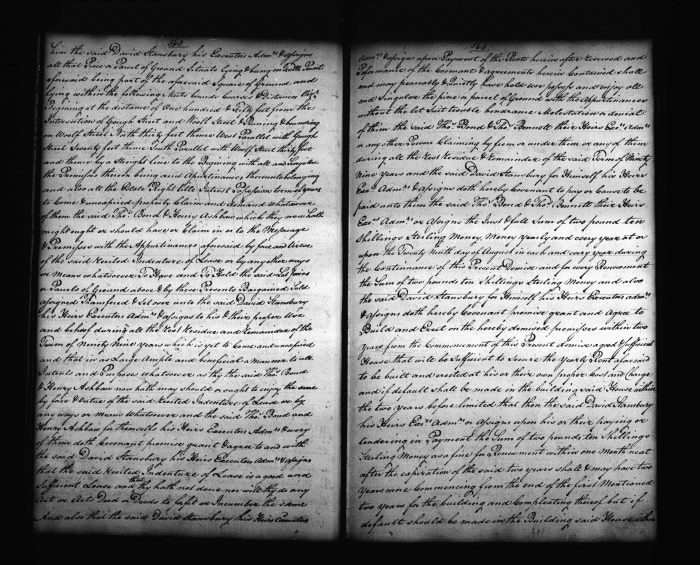 163
him the said David Stansbury his Executors Admrs & assigns
all that Piece or Parcel of Ground Situate lying & being on Fells Point
aforesaid being part of the aforesaid Square of Ground and
lying within the following meets bounds Courses & Distances Viz.
Begining at the distance of One hundred & fifty feet from the
Intersection of Gough Street and Wolf Street & Runing & bounding
on Wolf Street North thirty feet thence West Parallel with Gough
Street Seventy feet thence South Parallel with Wolf Street thirty feet
and thence by a Straight line to the Begining with all and Singular
the Premises thereto being and Apurtenances thereunto belonging
and also all the Estate Right title Interest Possession term of years
to Come & unexpired property Claim and demand whatsoever
of them the said Thos. Bond & Henry Ashbaw which they now hath
might ought or should have or Claim in or to the Message
& Premises with the Appurtinances aforesaid by force and Virtue
of the said Recited Indenture of Lease or by any other ways
or Means whatsoever To Have and To Hold the said
or Parcels of Ground above & by these Parents Bargained Sold
assigned Transfered & Set over unto the said David Stansbury
his Heirs Executors Admrs & assigns to his & their proper Use
and behoof during all the Rest Residue and Remainder of the
Term of Ninety Nine years which is yet to Come and unexpired
and that in as Large Ample and beneficial a manner to all
Intents and Purposes whatsoever as they the said Thos. Bond
& Henry Ashbaw now hath may should or ought to enjoy the same
by force & Virtue of the said Recited Indenture of Lease or by
any ways or means Whatsoever and the said Thos. Bond and
Henry Ashbaw for themselfs his Heirs Executors Admrs & every
of them doth Covenant promise grant & agree to and with
the said David Stansbury his Heirs Executors Admrs & assigns
that the said Recited Indenture of Lease is a good and
Sufficient Lease and that they hath not done nor will they do any
Act or Acts Deed or Deeds to Lessen or Incumber the same
And also that the said David Stansbury his Heirs Executors
164
Admrs & assigns upon Payment of the Rents herein after reserved and
Performance of the Covenant & agreements herein Contained shall
and may peaceably & Quietly have hold use possess and enjoy all
and Singular the piece or parcel of Ground with the Appurtinances
without the let Suit trouble hindrance Molestation or denial
of them the said Thos. Bond & Thos. Bennett their Heirs Exrs Admrs
or any other Person Claiming by from or under them or any of them
during all the Rest Residue & Remainder of the said Term of Ninety
Nine years and the said David Stansbury for Himself his Heirs
Exrs Admrs & assigns doth hereby Covenant to pay or Cause to be
paid unto them the said Thos. Bond & Thos. Bennett their Heirs
Exrs Admrs or assigns the Just & full Sum of two pound ten
Shillings Sterling Money, Money yearly and every year at or
upon the Twenty Ninth day of August in each and every year during
the Continuance of this Present Demise and for every Renewment
the Sum of two pounds ten Shillings Sterling Money and also
the said David Stansbury for Himself his Heirs Executors admrs
& assigns doth hereby Covenant promise grant and Agree to
Build and Erect on the hereby demised premises within two
years from the Commencement of this Present Demise a good & Sufficient
House that will be Sufficient to Secure the yearly Rent aforesaid
to be built and erected at his or their own proper Cost and Charge
and if default shall be made in the building said House within
the two years before limited that then the said David Stansbury
his Heirs Exrs Admrs or Assigns upon his or their paying or
tendering in Payment the Sum of two pounds ten Shillings
Sterling Money as a fine for Renewment within one Month next
after the expiration of the said two years shall & may have two
Years more Commencing from the end of the first Mentioned
two years for the building and Compleating thereof but if
default should be made in the Building said House within